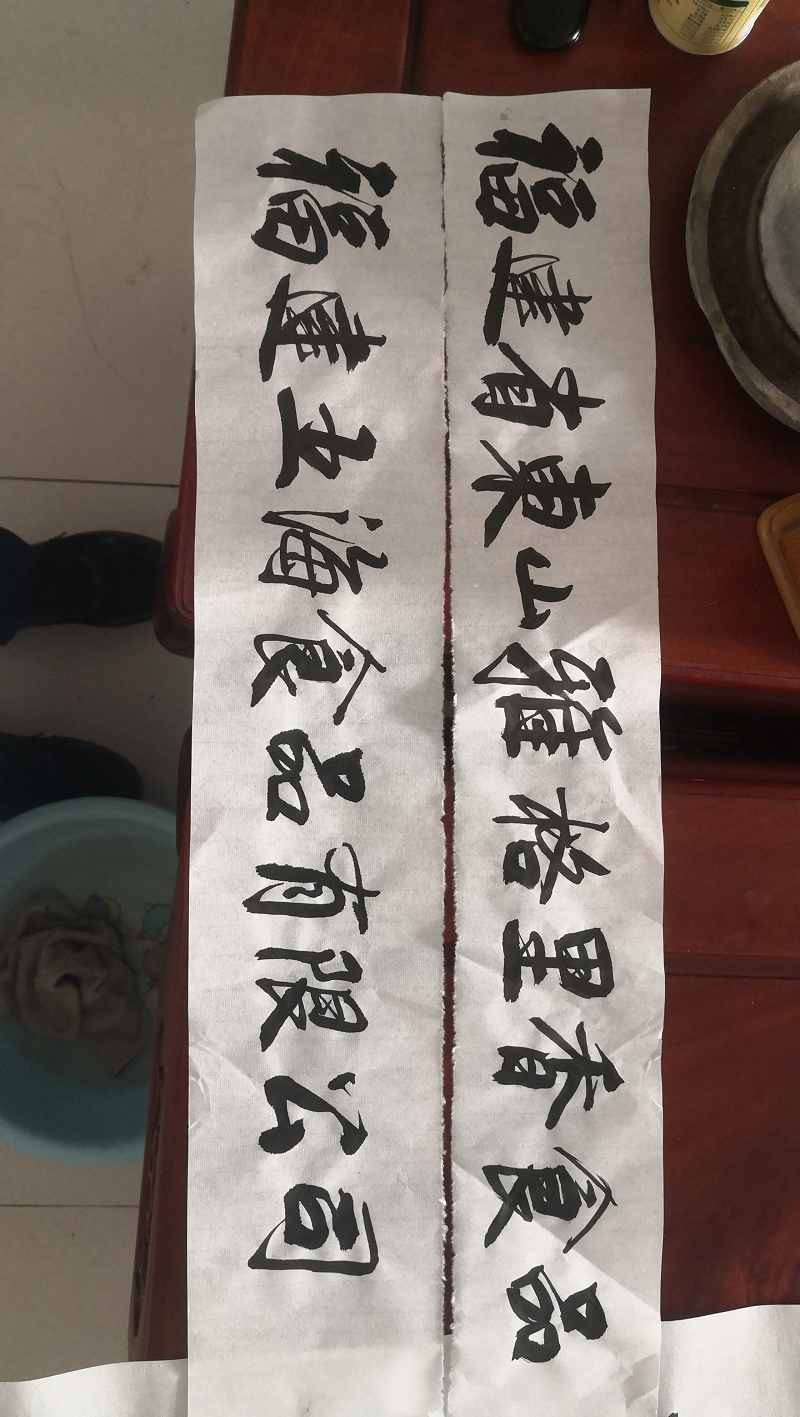 福建省東山雅格里香食品
福建上海食品有限公司